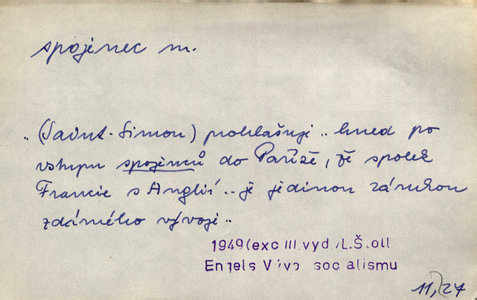 spojenec m.
„(Saint-Simon) prohlašuji .. hned po
vstupu spojenců do Paříže, že spolek
Francie s Anglií .. je jedinou zárukou
zdárného vývoje ..
1949(exc III.vyd./L.Štoll
Engels Vývoj socialismu
11,/27